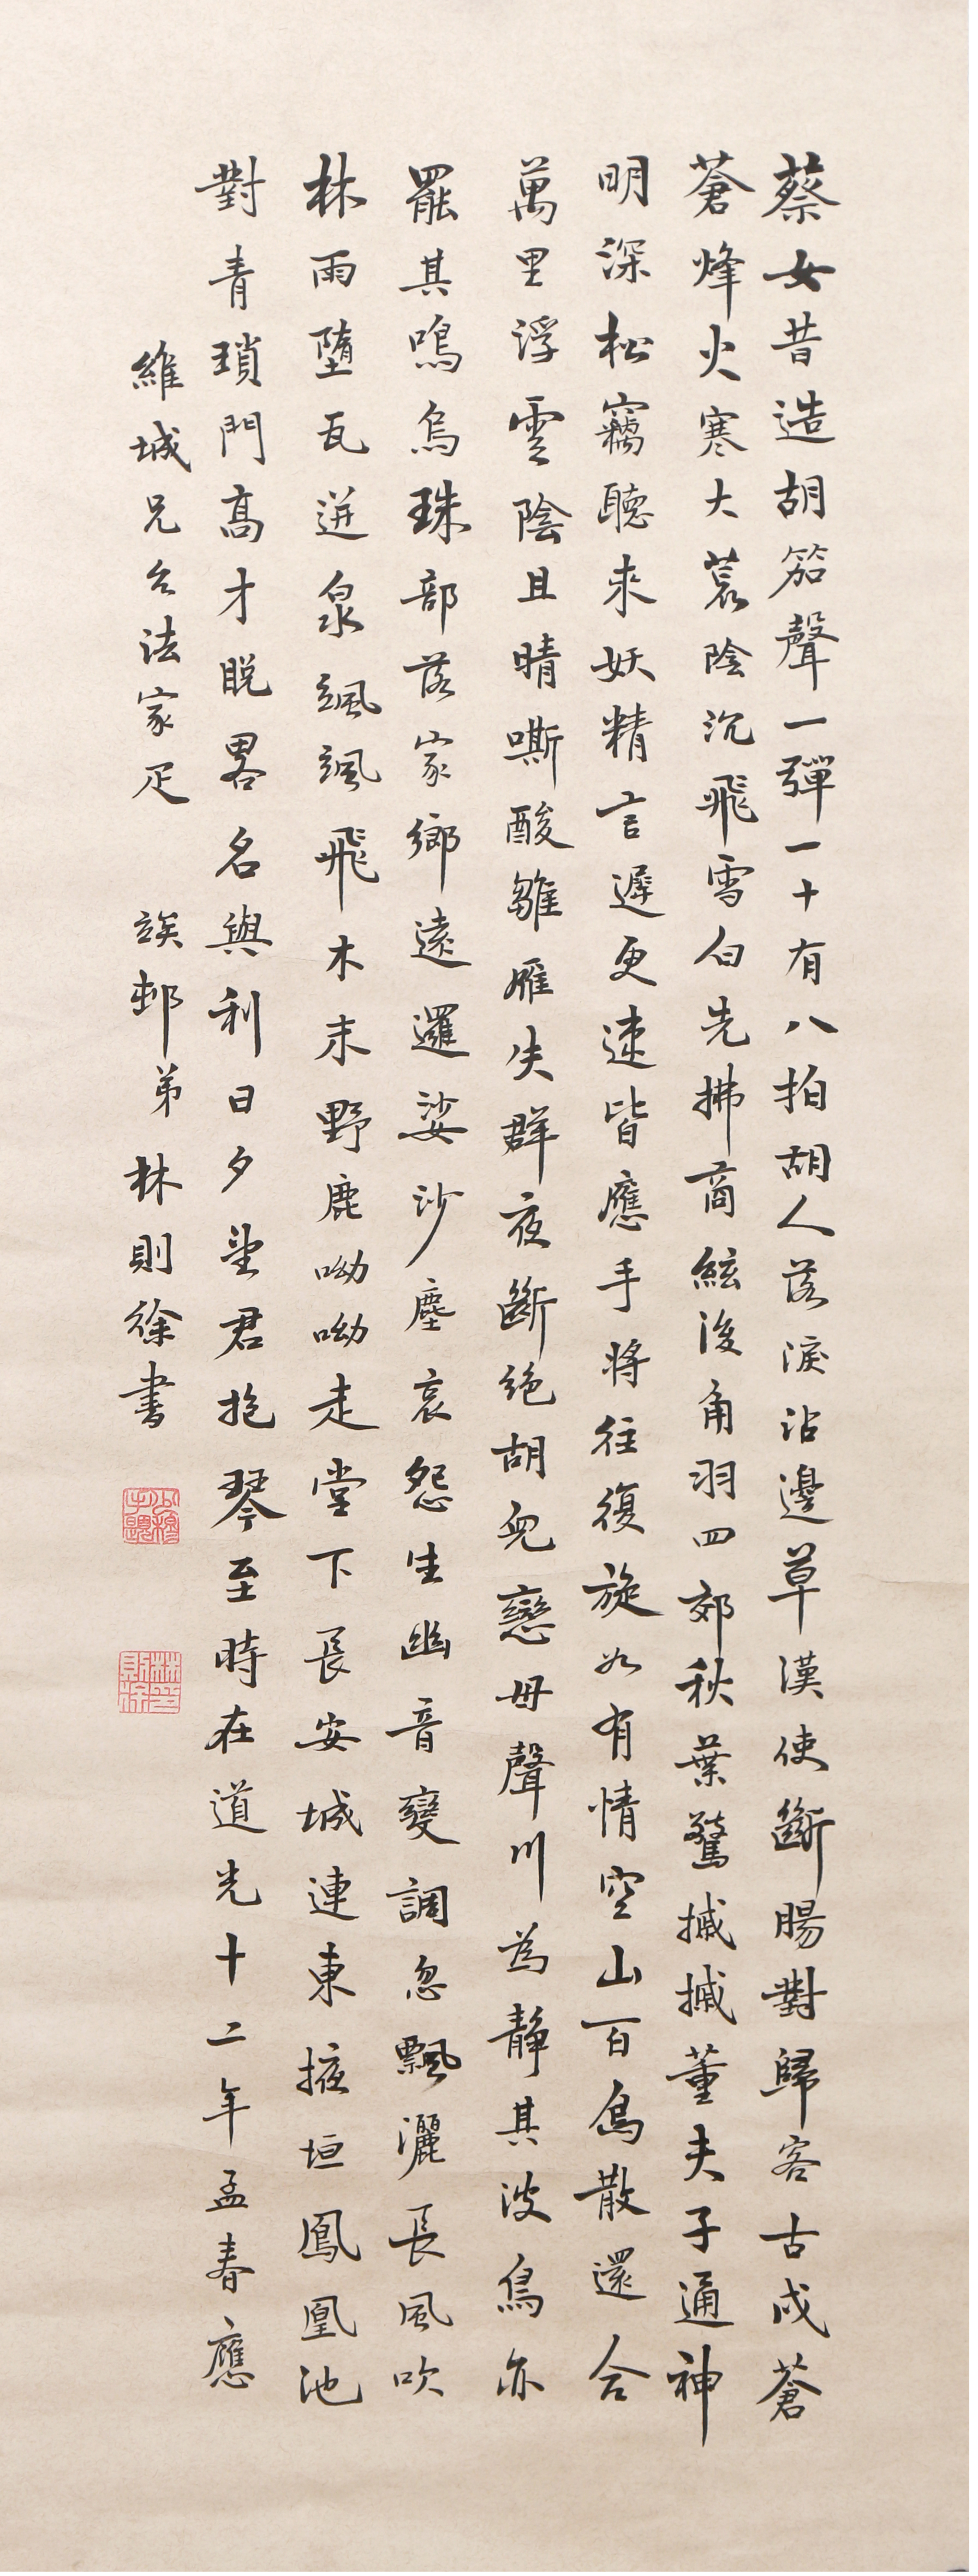 蔡女昔造胡笳聲一彈一十有八拍胡人落淚沾邊草漢使斷腸對歸客古戍蒼
蒼烽火寒大荒陰沉飛雪白先拂商絃後角羽四郊秋葉驚摵摵董夫子通神
明深松竊聽來妖精言遲更速皆應手將往復旋如有情空山百鳥散還合
萬里浮雲陰且晴嘶酸雛雁失群夜斷絕胡兒戀母聲川為靜其波鳥亦
罷其鳴烏珠部落家鄉遠邏娑沙塵哀怨生幽音變調忽飄灑長風吹
林雨墮瓦迸泉颯颯飛木末野鹿呦呦走堂下長安城連東掖垣鳳凰池
對青瑣門高才脫畧名與利日夕望君抱琴至時在道光十二年孟春應
維城兄公法家疋 竢邨弟林則徐書
少穆手題
林印則徐